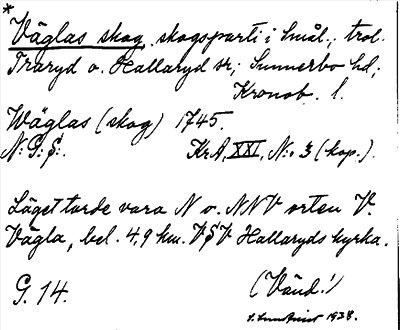 *
Väglas skog, skogsparti i Smål.; trol.
Traryd o. Hallaryd sr; Sunnerbo hd;
Kronob. l.
Wäglas (skog) 1745.
N: G: S:. KrA, XXI, N:o 3 (kop.).
Läget torde vara N o. NNV orten V.
Vägla, bel. 4,9 km. VSV Hallaryds kyrka.
G. 14. (Vänd!)
1938.